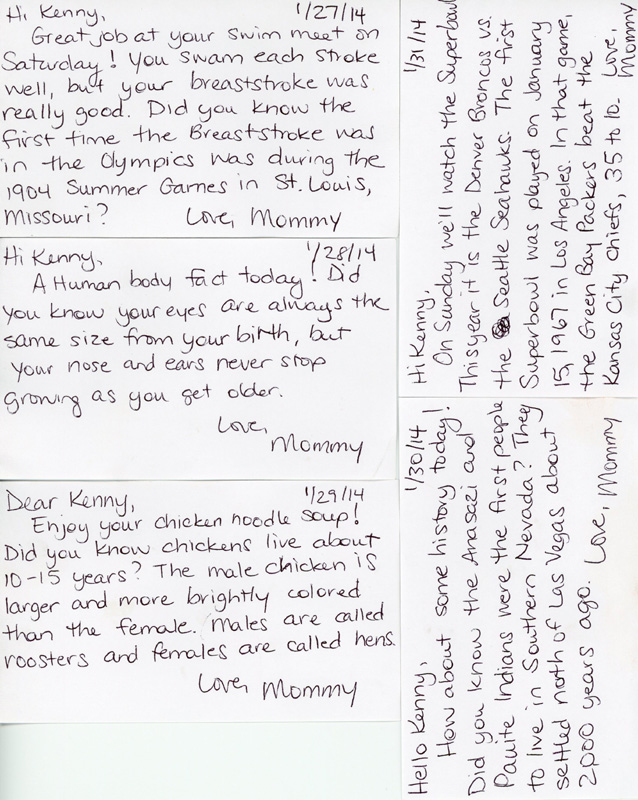 Hi Kenny, 1/27/14
Great job at your swim meet on
Saturday! You swam each stroke
well, but your breaststroke was
really good. Did you know the
first time the Breaststroke was
in the Olympics was during the
1904 Summer Games in St. Louis,
Missouri? Love, Mommy
Hi Kenny, 1/28/14
A Human body fact today! Did
you know your eyes are always the
same size from your birth, but
your nose and ears never stop
growing as you get older.
Love,
Mommy
Dear Kenny, 1/29/14
Enjoy your chicken noodle soup!
Did you know chickens live about
10-15 years? The male chicken is
larger and more brightly colored
than the female. Males are called
roosters and females are called hens.
Love, Mommy
Hello Kenny, 1/30/14
How about some history today!
Did you know the Anasazi and
Pauite Indians were the first people
to live in Southern Nevada? They
settled north of Las Vegas about
2,000 years ago. Love, Mommy
Hi Kenny, 1/31/14
On Sunday we'll watch the Superbowl
This year it is the Denver Broncos vs.
the Seattle Seahawks. The first
Superbowl was played on January
15, 1967 in Los Angeles. In that game,
the Green Bay Packers beat the
Kansas City Chiefs, 35 to 10. Love,
Mommy